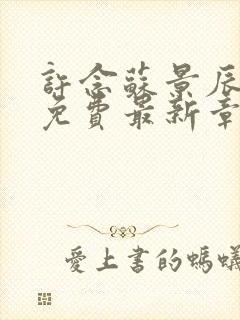 許念蘇景辰
免費最新章
愛上書的螞蟻